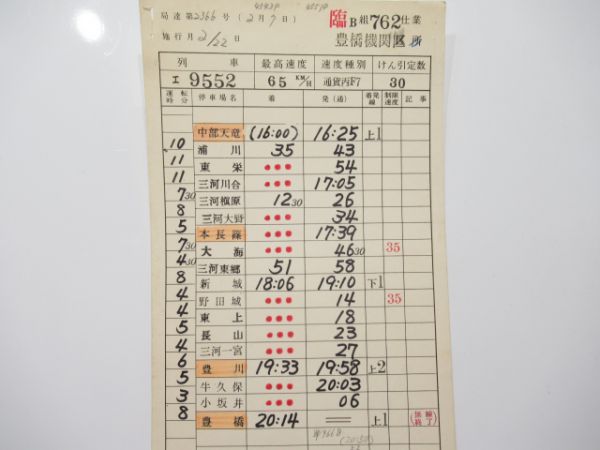 局達第2366号(2月9日)
臨B組762仕業
施行月2/22日
豊橋機関区
列車 最高速度 速度種別 けん引定数
エ9552 65KM/H 通貨丙F7 30
運転時分 停車場名 着 発(通) 着発線 制限速度 記事
中部天竜 (16:00) 16:25 上1
10 浦川 35 43
11 東栄 ••• 54
11 三河川合 ••• 17:05
7 30 三河槇原 12 30 26
8 三河大野 ••• 34
5 本長篠 ••• 17:39
7 30 大海 ••• 46 30 35
4 30 三河東郷 51 58
8 新城 18:06 19:10 下1
4 野田城 ••• 14 35
4 東上 ••• 18
5 長山 ••• 23
4 三河一宮 ••• 27
6 豊川 19:33 19:58 上2
5 牛久保 ••• 20:03
3 小坂井 ••• 06
8 豊橋 20:14 = 上1 (無線終了)